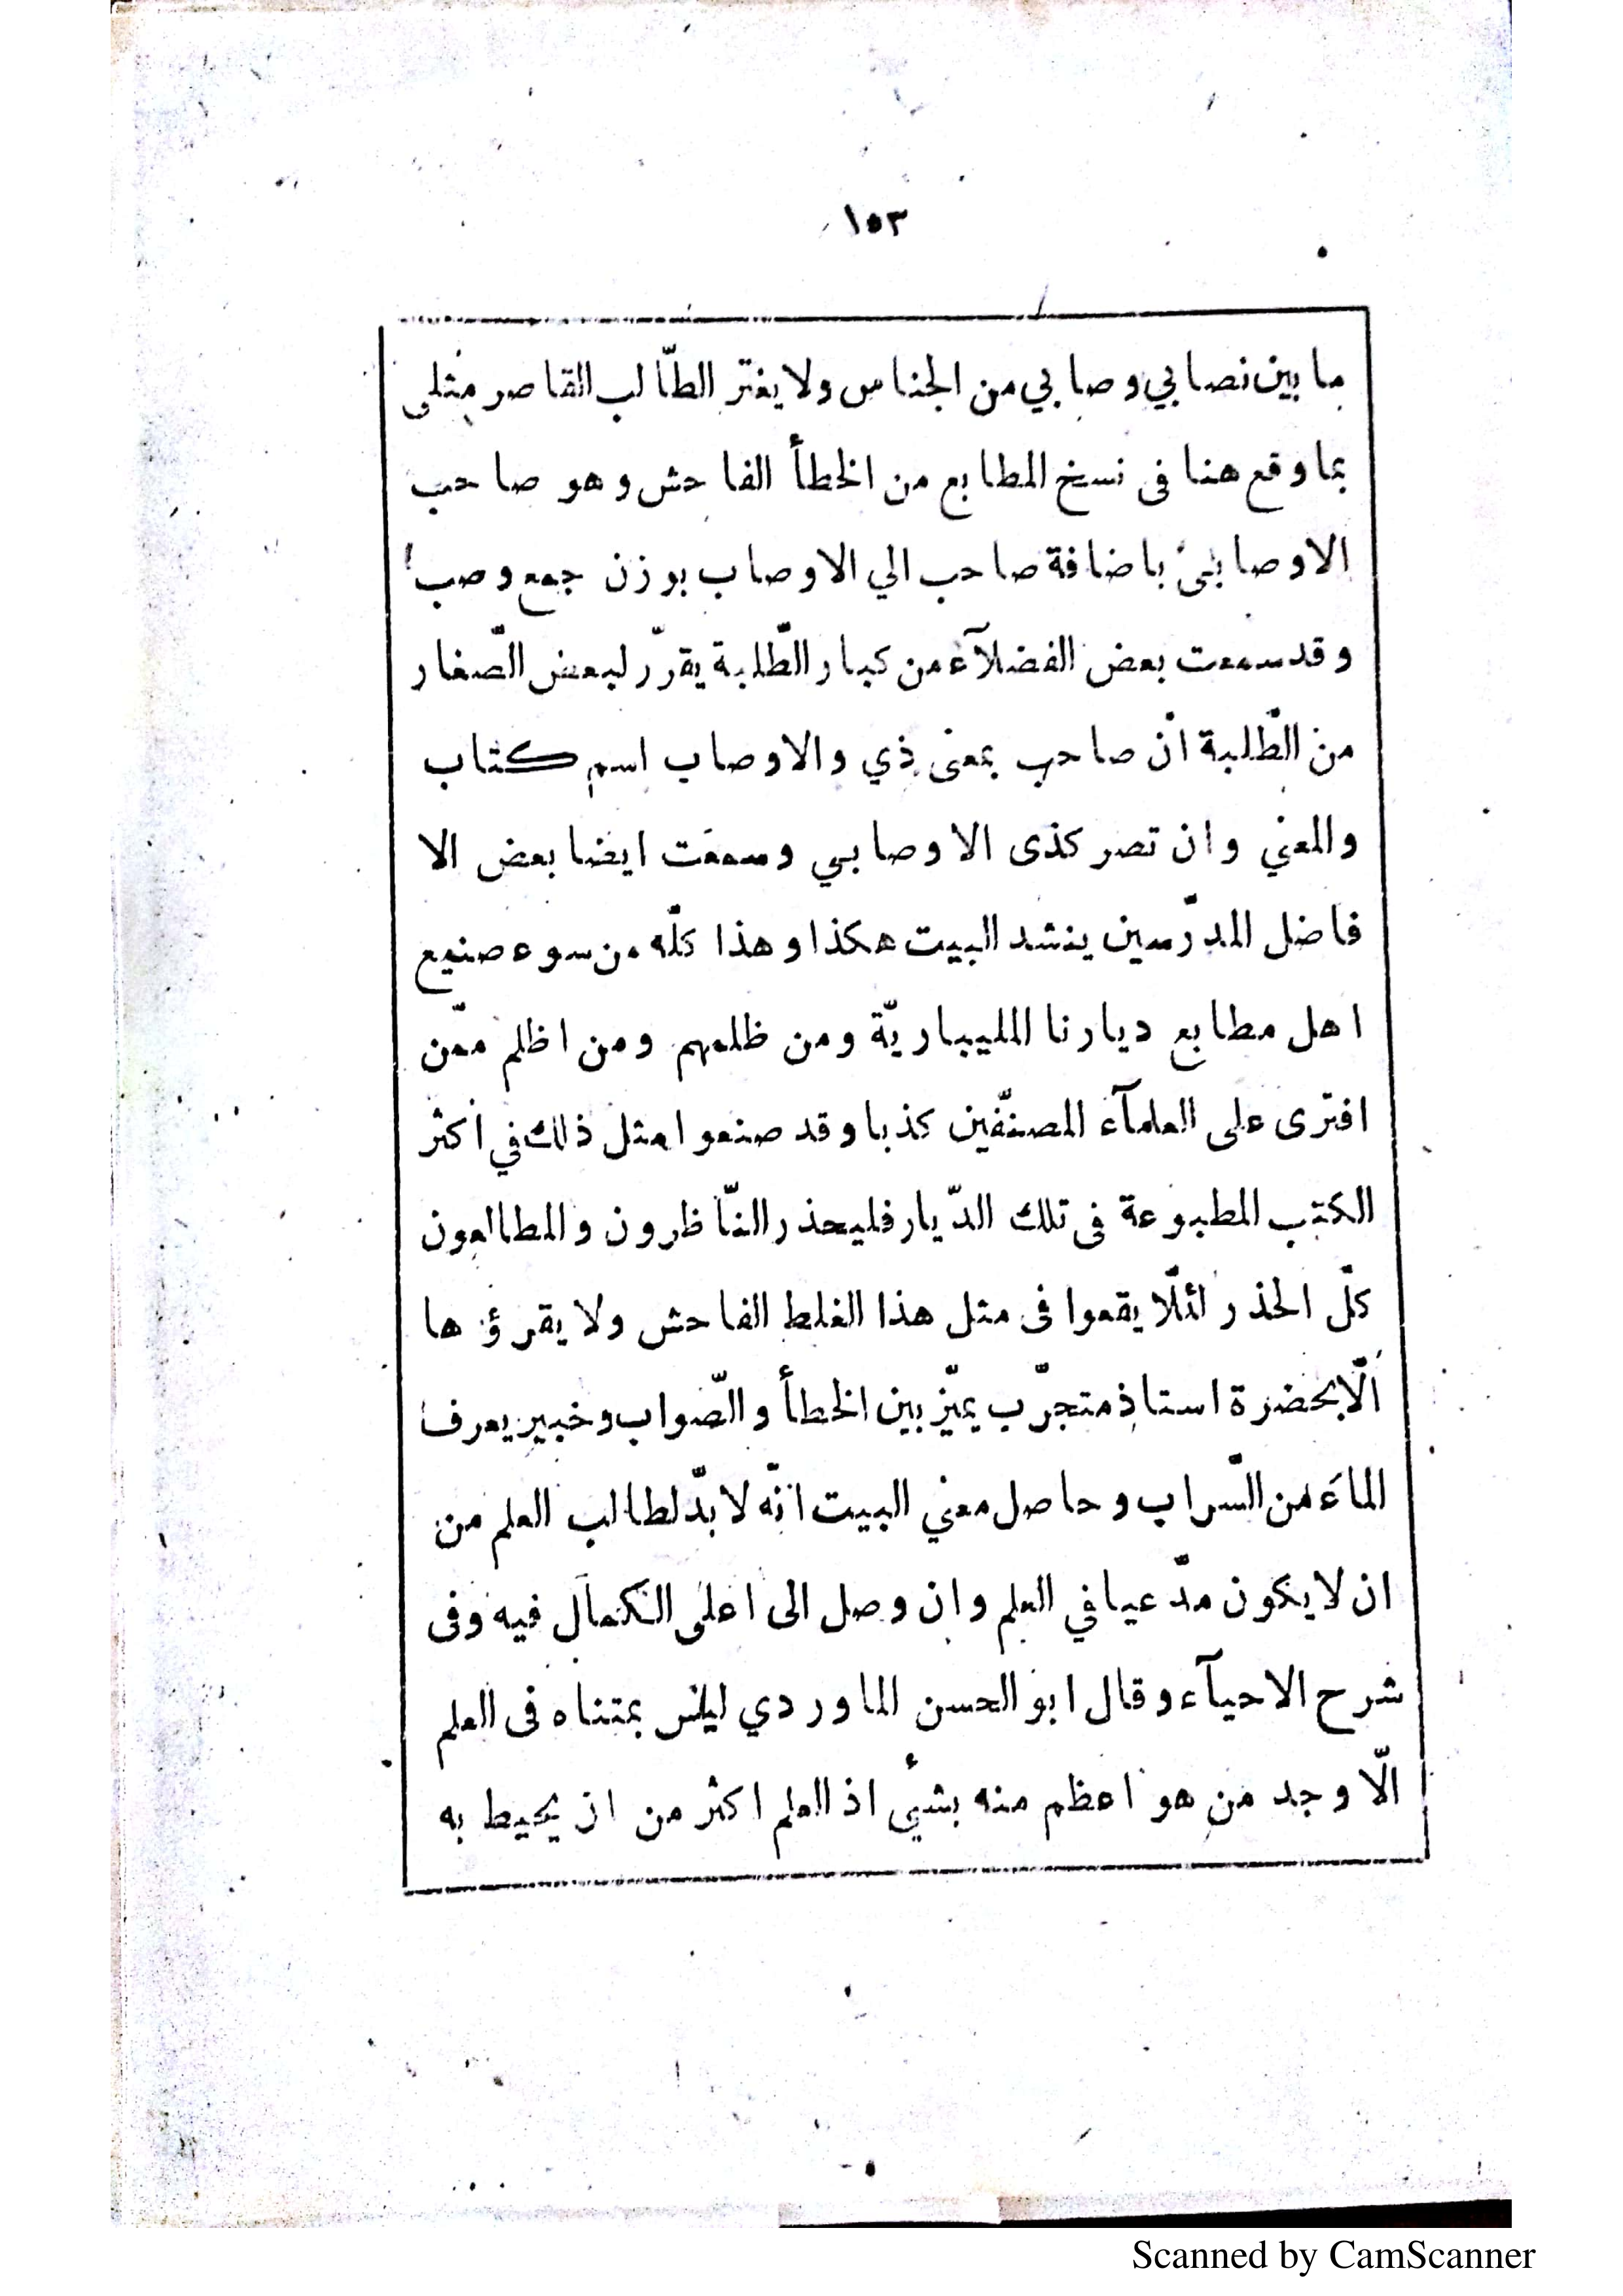 ١٥٣
ما بين نصابي وصابي من الجناس ولا يغترّ الطّالب القاصر مثلى
بما وقع هنا فى نسخ المطابع من الخطأ الفاحش وهو صاحب
الاوصابى باضافة صاحب الي الاوصاب بوزن جمع وصب
وقد سمعت بعض الفضلآء من كبار الطّلبة يقرّر لبعض الصّغار
من الطّلبة انّ صاحب بمعنى ذي والاوصاب اسم كتاب
والمعني وان تصر كذى الاوصابي وسمعت ايضا بعض الا
فاضل المدرّسين ينشد البيت هكذا وهذا كلّه من سوء صنيع
اهل مطابع ديارنا المليباريّة ومن ظلمهم ومن اظلم ممّن
افترى على العلمآء المصنّفين كذبا وقد صنعوا مثل ذلك في اكثر
الكتب المطبوعة فى تلك الدّيار فليحذر النّاظرون والمطالعون
كلّ الحذر لئلّا يقعوا فى مثل هذا الغلط الفاحش ولا يقرؤها
الّا بحضرة استاذ متجرّب يميّز بين الخطأ والصّواب وخبير يعرف
الماء من السّراب وحاصل معني البيت انّه لا بدّ لطالب العلم من
ان لا يكون مدّعيا في العلم وان وصل الى اعلى الكمال فيه وفى
شرح الاحيآء وقال ابو الحسن الماوردي ليس بمتناه فى العلم
الّا وجد من هو اعظم منه بشئ اذ العلم اكثر من ان يحيط به
Scanned by CamScanner